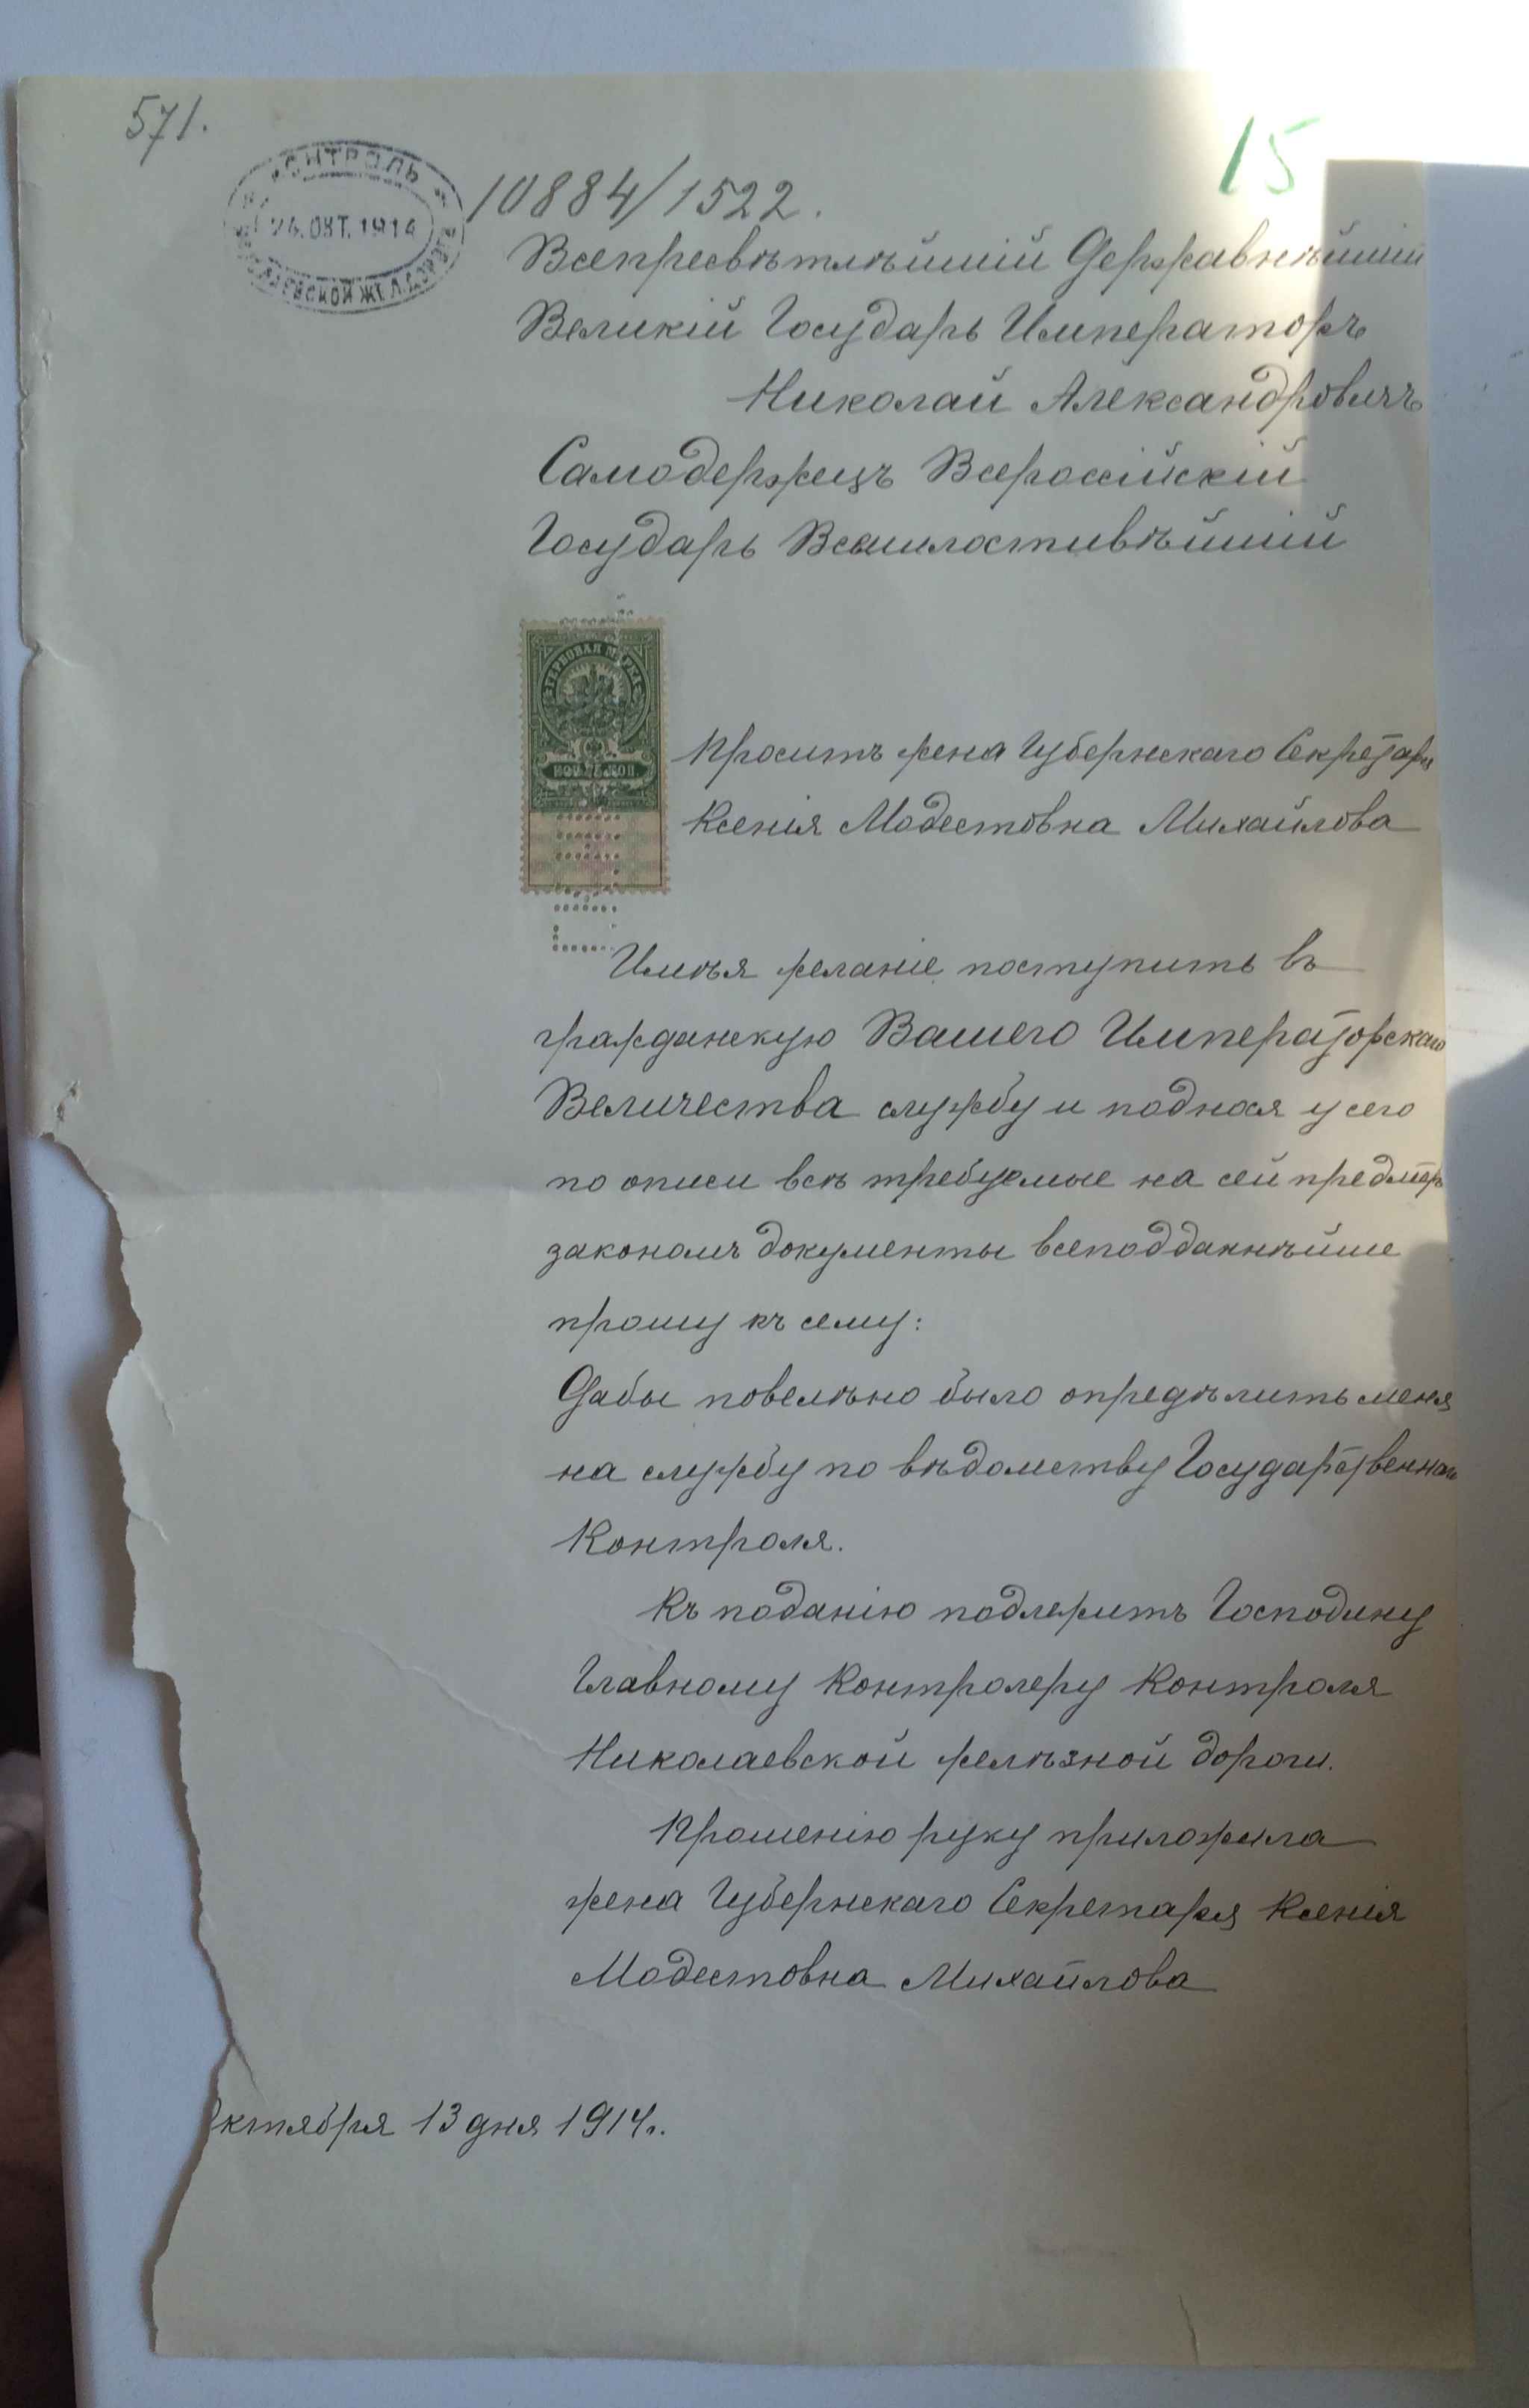 571.
15
КОНТРОЛЬ
24.ОКТ.1914
НИКОЛАЕВСКОЙ ЖЕЛ.ДОРОГИ
10884/1522.
Всепресвѣтлѣйшій Державнѣйшій
Великій Государь Императоръ
Николай Александровичъ
Самодержецъ Всероссійскій
Государь Всемилостивѣйшій
ГЕРБОВАЯ МАРКА
КОП КОП
Проситъ жена Губернскаго Секретаря
Ксенія Модестовна Михайлова
Имѣя желаніе поступить въ
гражданскую Вашего Императорскаго
Величества службу и поднося у сего
по описи всѣ требуемые на сей предметъ
закономъ документы всеподданнѣйше
прошу къ сему:
Дабы повелѣно было опредѣлить меня
на службу по вѣдомству Государственнаго
Контроля.
Къ поданію подлежитъ Господину
Главному Контролеру Контроля
Николаевской желѣзной дороги.
Прошенію руку приложила
жена Губернскаго Секретаря Ксенія
Модестовна Михайлова
Октября 13 дня 1914г.